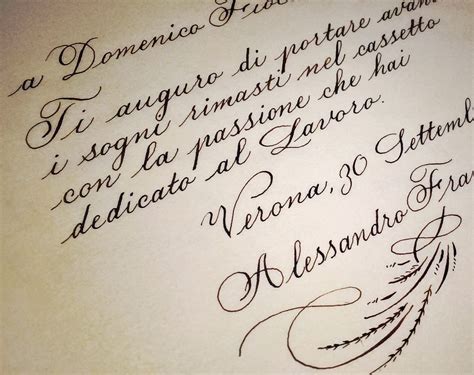 a Domenico
Ti auguro di portare avan
i sogni rimasti nel cassetto
con la passione che hai
dedicato al Lavoro.
Verona, 30 Settem
Alessandro Fra